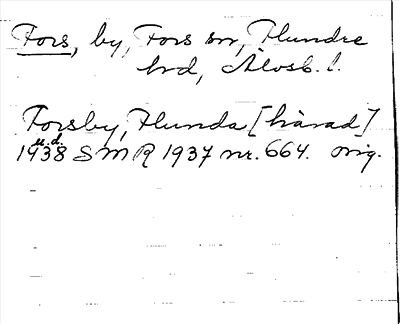 Fors, by, Fors sn, Flundre
hrd, Älvsb. l.
Forsby, Flunda [härad]
u.d.
1938 SMR 1937 nr. 664. orig.